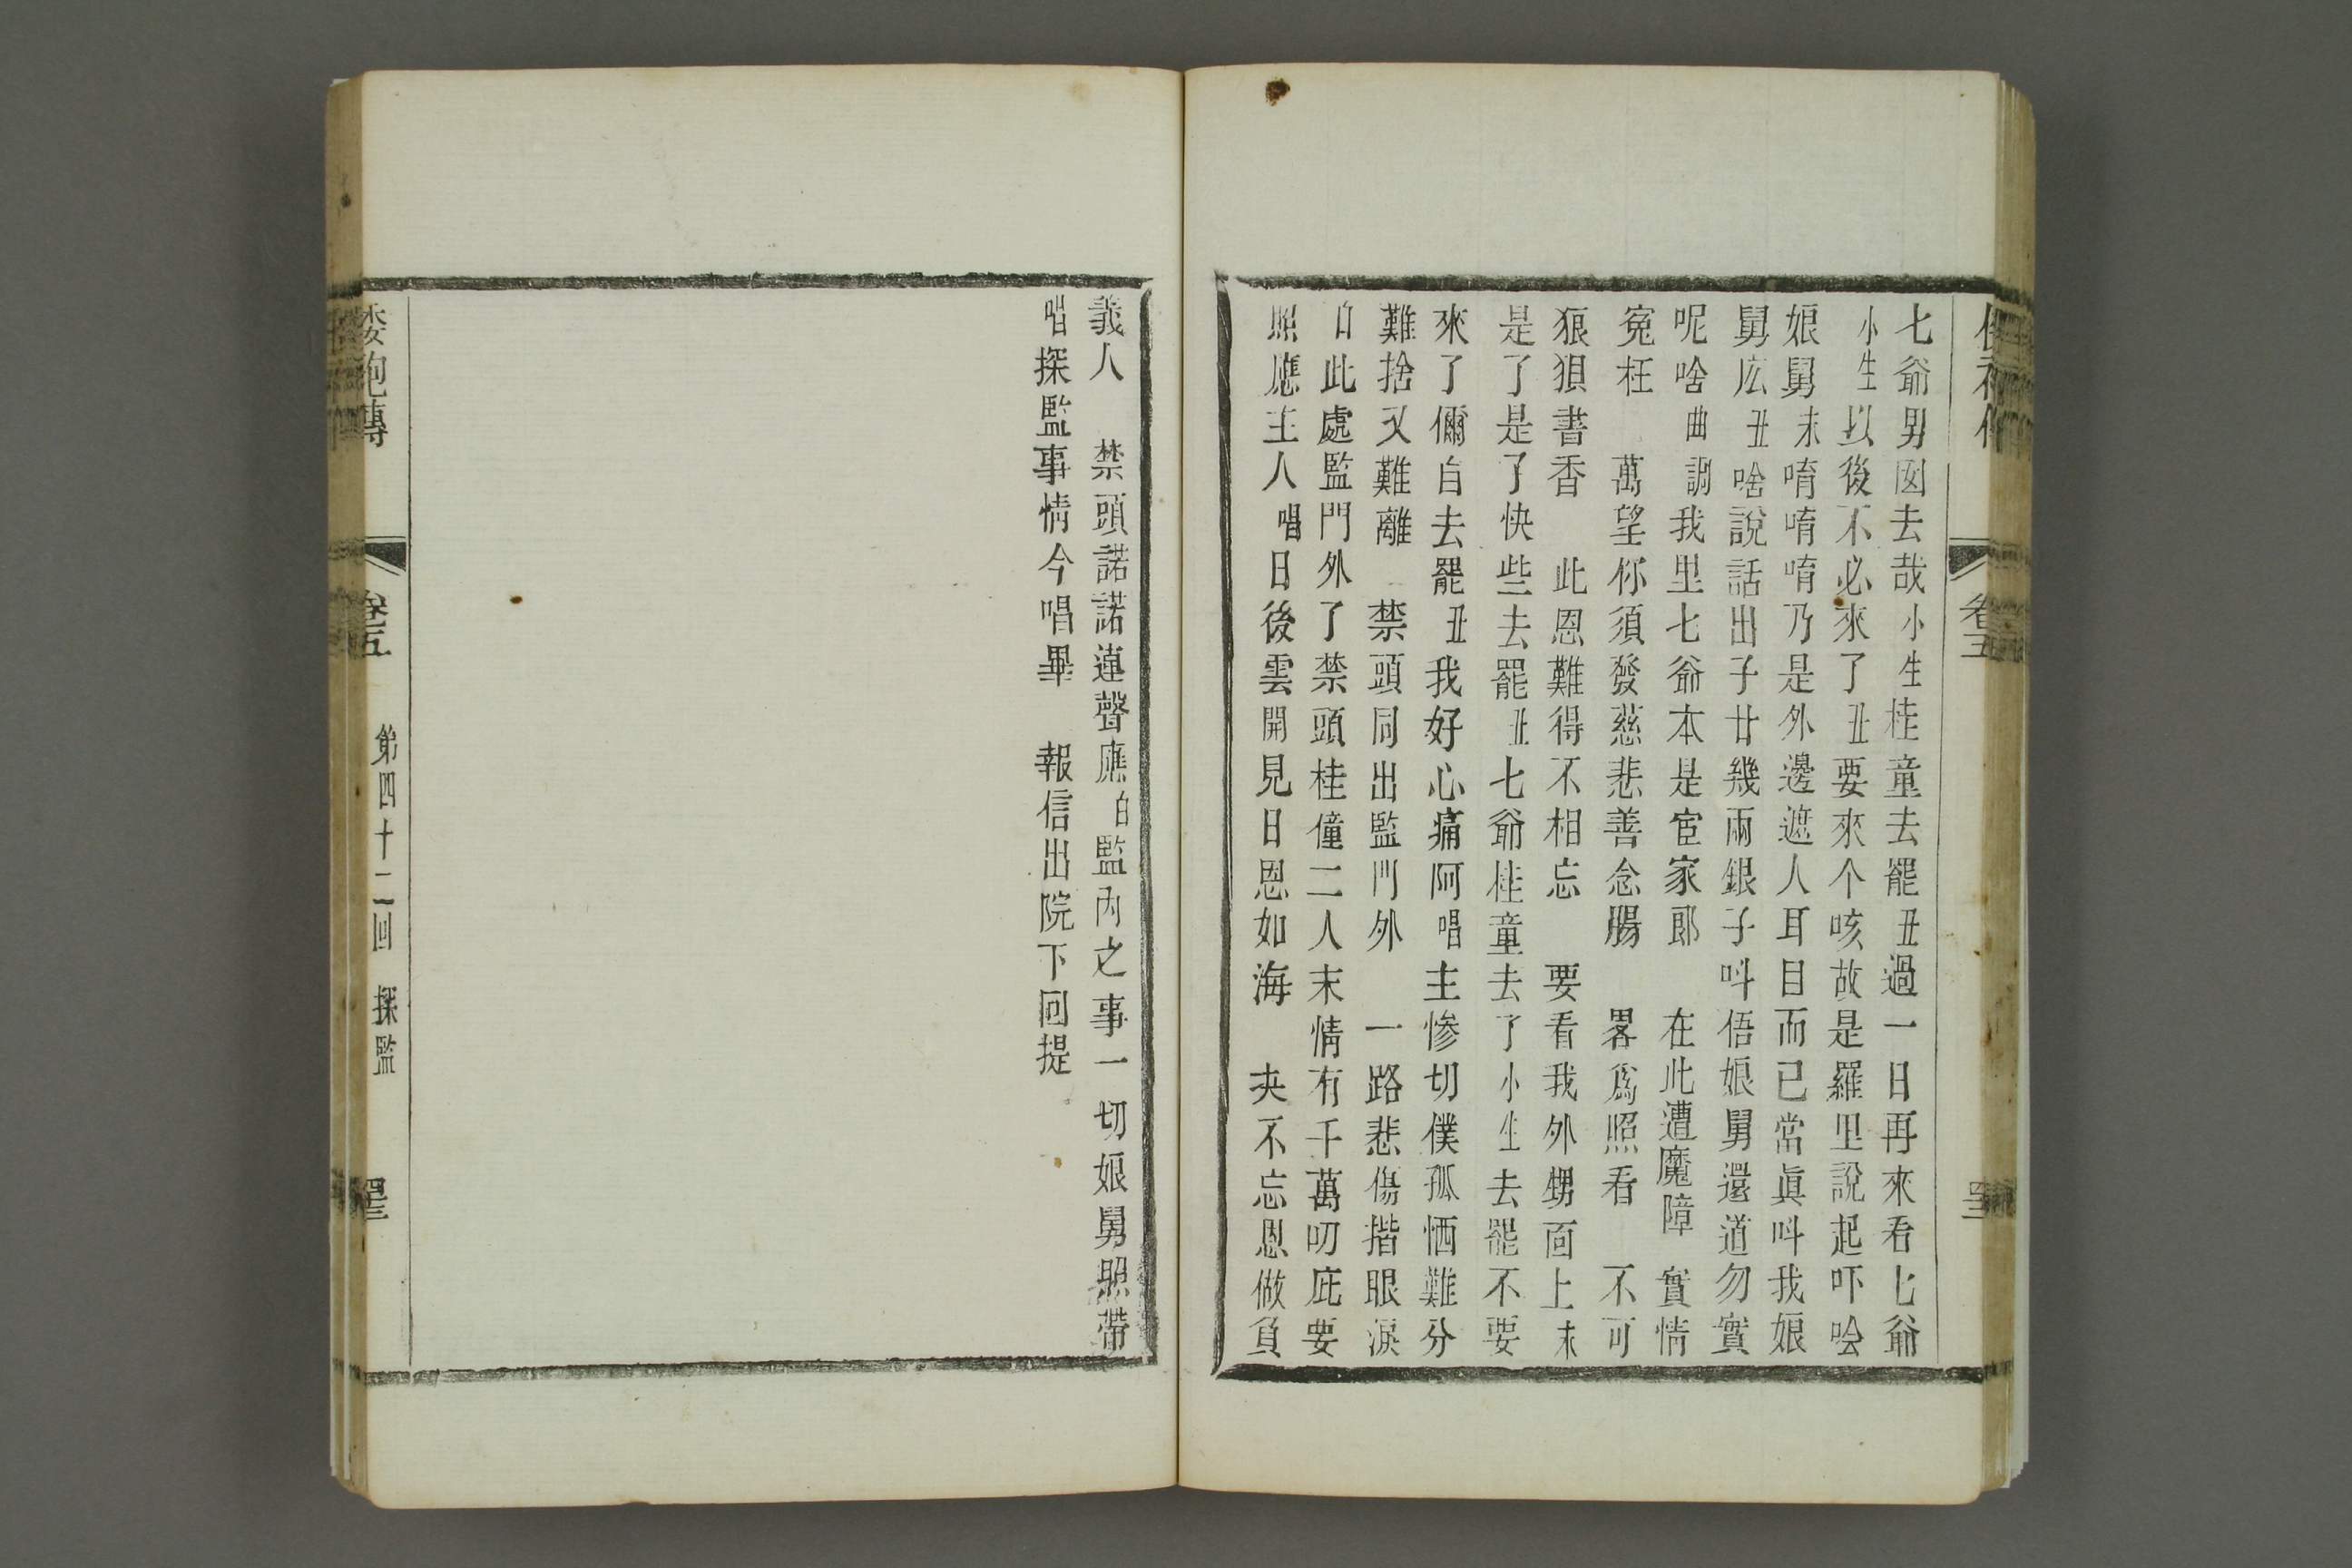 七爺男囡去哉小生桂童去罷丑過一日再來看七爺
小生以後不必來了丑要來个咳故是羅里說起吓唅
娘舅末唷唷唷乃是外邊遮人耳目而已當眞呌我娘
舅広丑啥說話出子廿幾兩銀子呌俉娘舅還道勿實
呢啥曲調我里七爺本是宦家郎　在此遭魔障　實情
寃枉　萬望你須發慈悲善念腸　畧爲照看　不可
狼狽書香　此恩難得不相忘　要看我外甥面上末
是了是了快些去罷丑七爺桂童去了小生去罷不要
來了儞自去罷丑我好心痛阿唱主慘切僕孤恓難分
難捨又難離　禁頭同出監門外　一路悲傷揩眼淚
白此處監門外了禁頭桂僮二人末情有千萬叨庇要
照應主人唱日後雲開見日恩如海　夬不忘恩做負
卷五
義人　禁頭諾諾連聲應白監內之事一切娘舅照帶
唱探監事情今唱畢　報信出院下回提
倭袍傳　卷五　第四十二回　探監